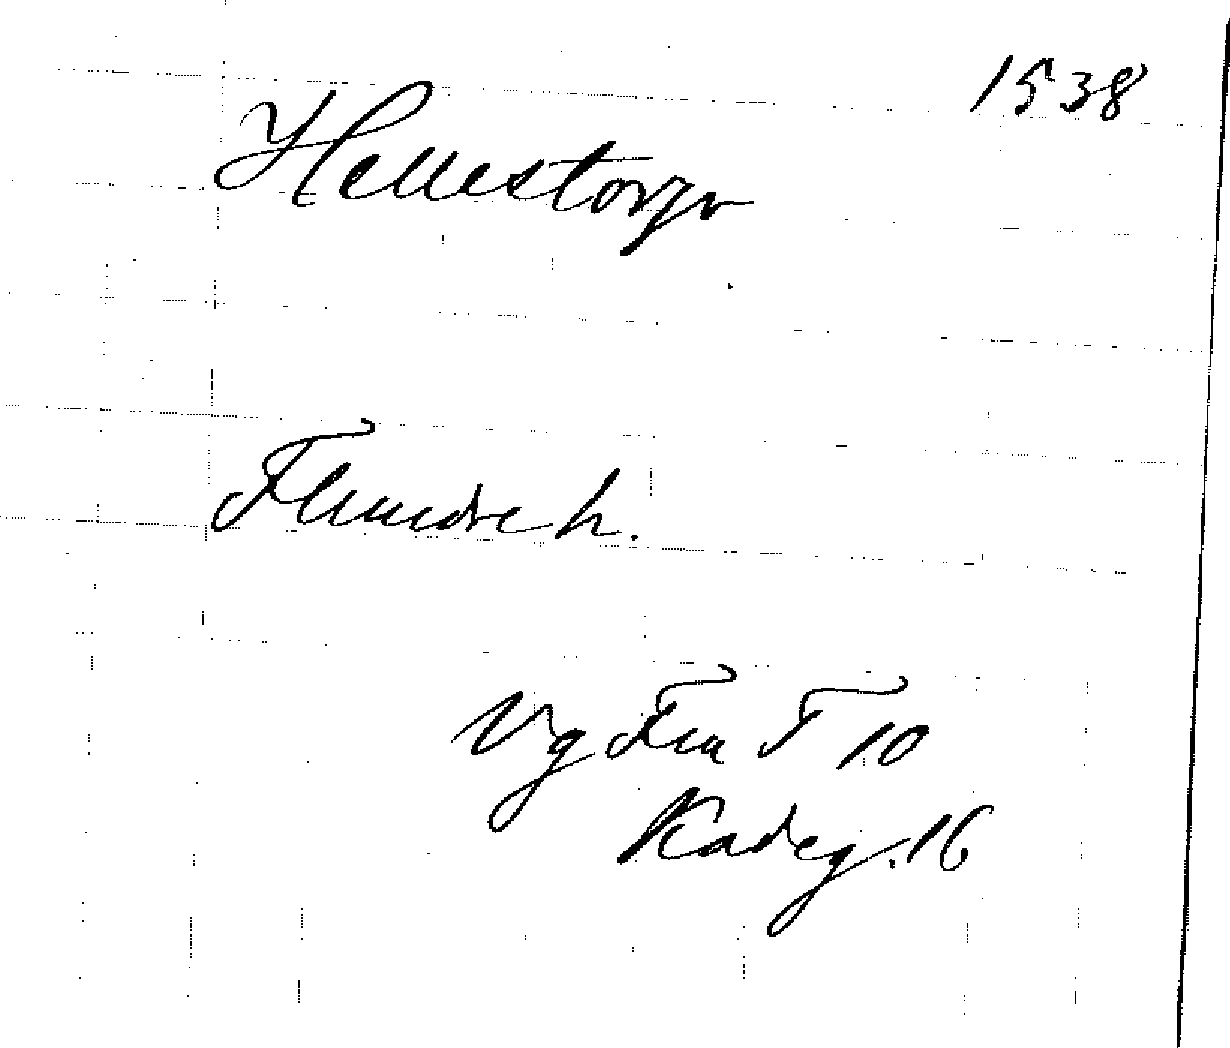 1538
Hellestorp
Flundre h.
Vg Fm T 10
16